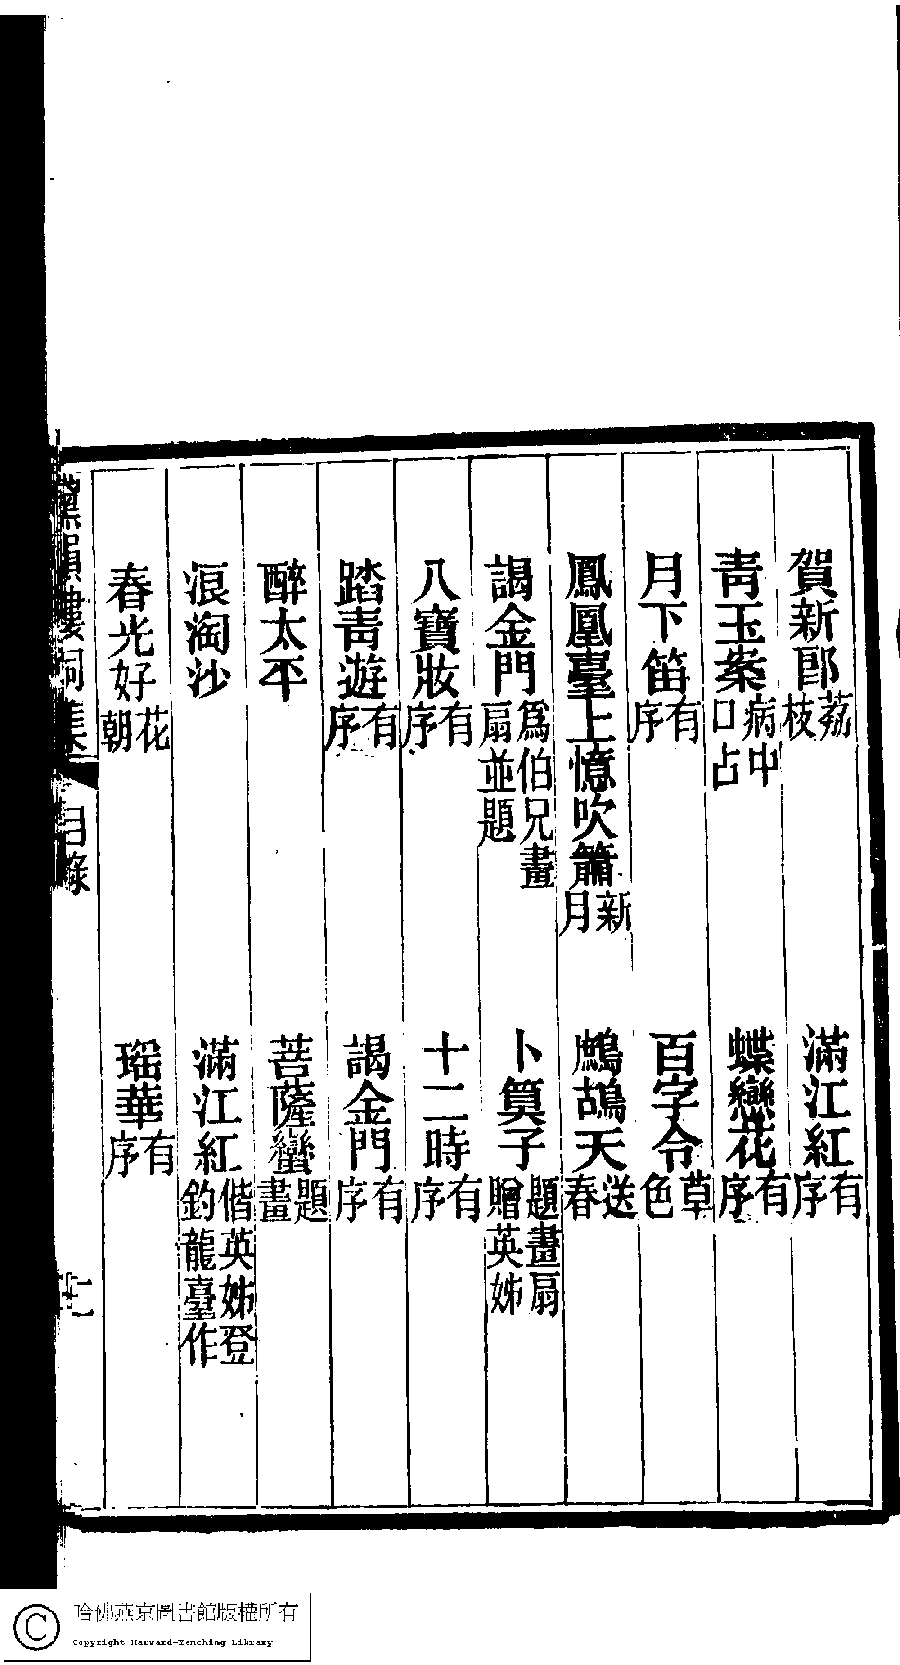 賀新郎荔枝 滿江紅有序
青玉案病中口占 蝶戀花有序
月下笛有序 百字令草色
鳳凰臺上憶吹簫新月 鷓鴣天送春
謁金門爲伯兄畫扇並題 卜算子題畫扇贈英姊
八寶妝有序 十二時有序
踏青遊有序 謁金門有序
醉太平 菩薩蠻題畫
浪淘沙 滿江紅偕英姊登釣龍臺作
春光好花朝 瑶華有序
黛韻樓詞集 目錄
哈佛燕京圖書館版權所有
Copyright Harvard-Yenching Library